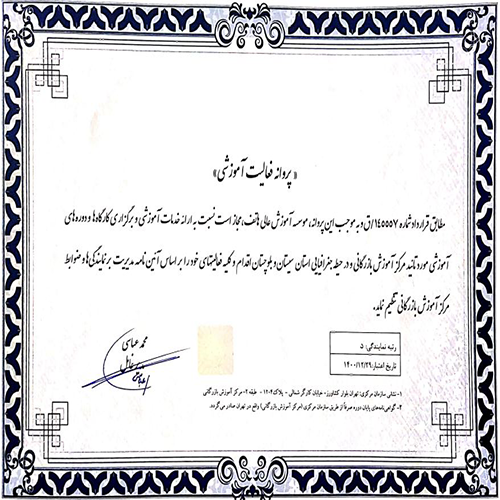 « پروانه فعالیت آموزشی »
مطابق قرارداد شماره ۱۴۵۵۵۷/ق و به موجب این پروانه، موسسه آموزش عالی هاتف، مجاز است نسبت به ارائه خدمات آموزشی و برگزاری کارگاه‌ها و دوره‌های
آموزشی مورد تأیید مرکز آموزش بازرگانی و در حیطه جغرافیایی استان سیستان و بلوچستان اقدام و کلیه فعالیتهای خود را بر اساس آئین نامه مدیریت بر نمایندگی‌ها و ضوابط
مرکز آموزش بازرگانی تنظیم نماید.
رتبه نمایندگی: ۵
تاریخ اعتبار: ۱۴۰۰/۱۲/۲۹
محمد عباسی
مدیر عامل
۱- نشانی سازمان مرکزی: تهران بلوار کشاورز - خیابان کارگر شمالی - پلاک ۱۲۰۴ - طبقه ۲ - مرکز آموزش بازرگانی
۲- گواهی‌نامه‌های پایان دوره صرفاً از طریق سازمان مرکزی (مرکز آموزش بازرگانی) واقع در تهران صادر می گردد.